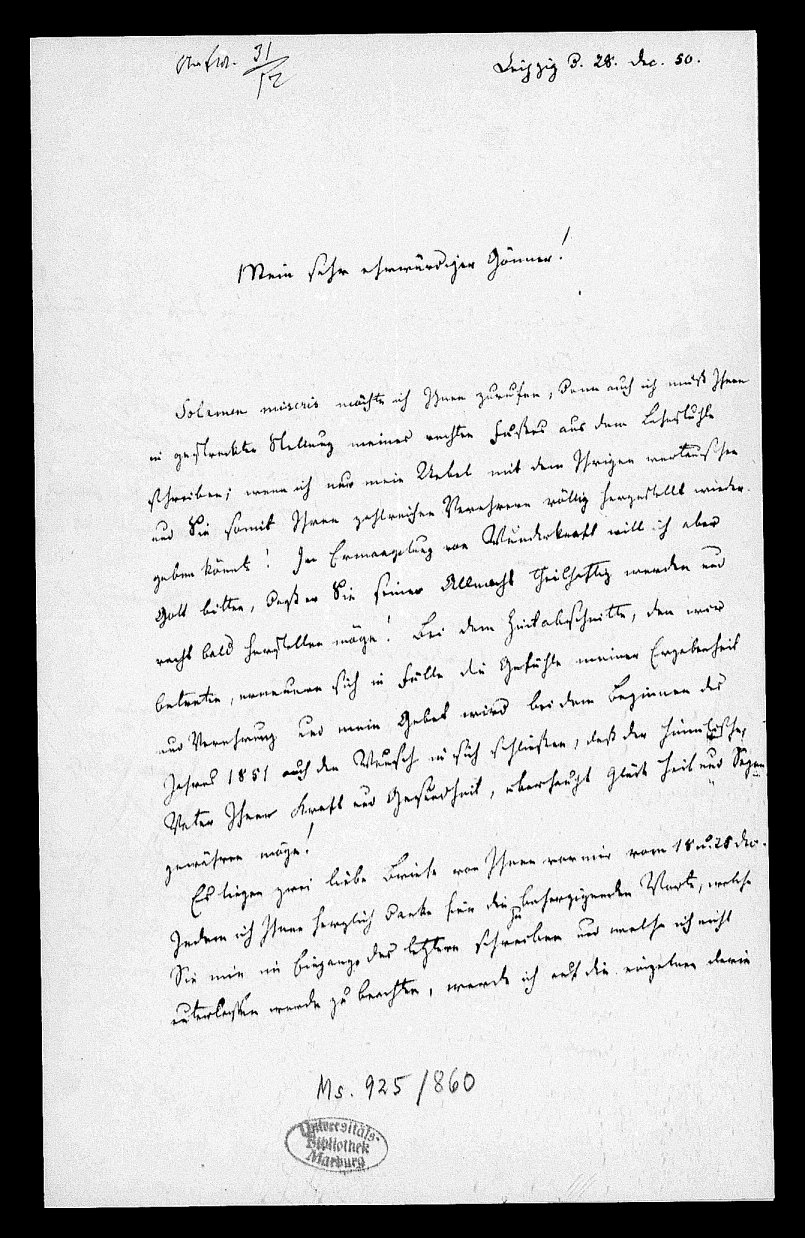 Antw. 31/12
Leipzig d. 28. Dec. 50.
Mein sehr ehrwürdiger Gönner!
Solamen miseris möchte ich Ihnen zurufen, denn auch ich muß Ihnen
in gestreckter Stellung meines rechten Fußes aus dem Lehnstuhle
schreiben; wenn ich nur mein Uebel mit dem Ihrigen vertauschen
und Sie somit Ihren zahlreichen Verehrern völlig hergestellt wieder
geben könnte! In Ermangelung von Wunderkraft will ich aber
Gott bitten, daß er Sie seiner Allmacht theilhaftig werden und
recht bald herstellen möge! Bei dem Zeitabschnitte, den wir
betreten, erneuern sich in Fülle die Gefühle meiner Ergebenheit
und Verehrung und mein Gebet wird bei dem Beginnen des
Jahres 1851 auch den Wunsch in sich schließen, daß der himmlische
Vater Ihnen Kraft und Gesundheit, überhaupt Glück Heil und Segen
gewähren möge!
Es liegen zwei liebe Briefe von Ihnen vor mir vom 18 u. 28 Dec.
Indem ich Ihnen herzlich danke für die zu beherzigenden Worte, welche
Sie mir im Eingange des letztern schreiben und welche ich nicht
unterlassen werde zu beachten, werde ich auf die einzelnen darin
Ms. 925/860
Universitäts-
Bibliothek
Marburg